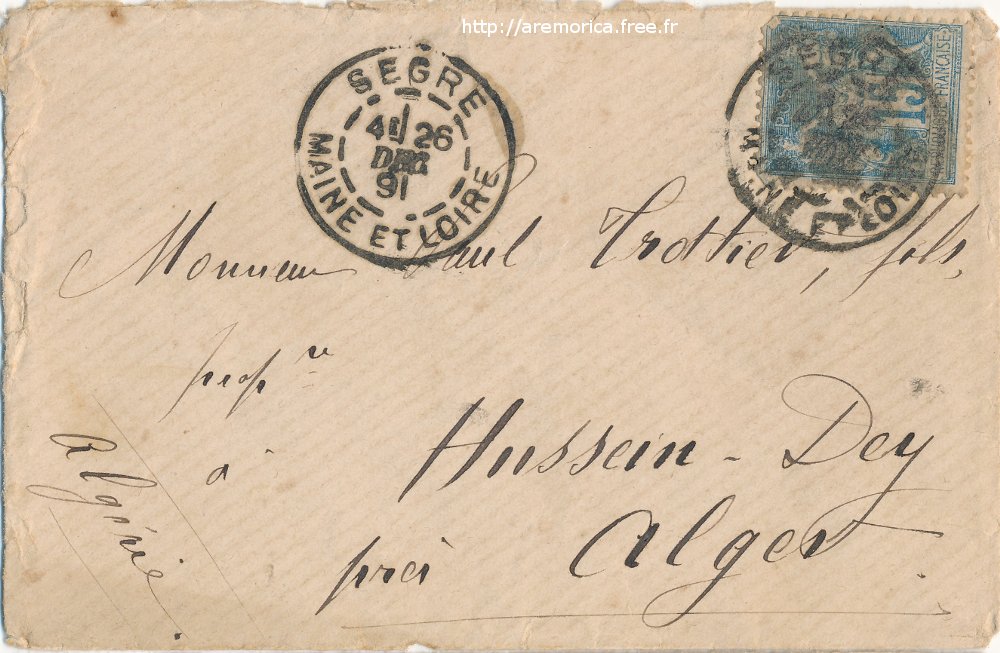 http://aremorica.free.fr
SEGRE
4E 26
DEC
91
MAINE ET LOIRE
15
FRANÇAISE
SEGRE
ET LOIRE
Monsieur Paul Trottier, fils,
prop re
à Hussein-Dey
près Alger
Algérie.